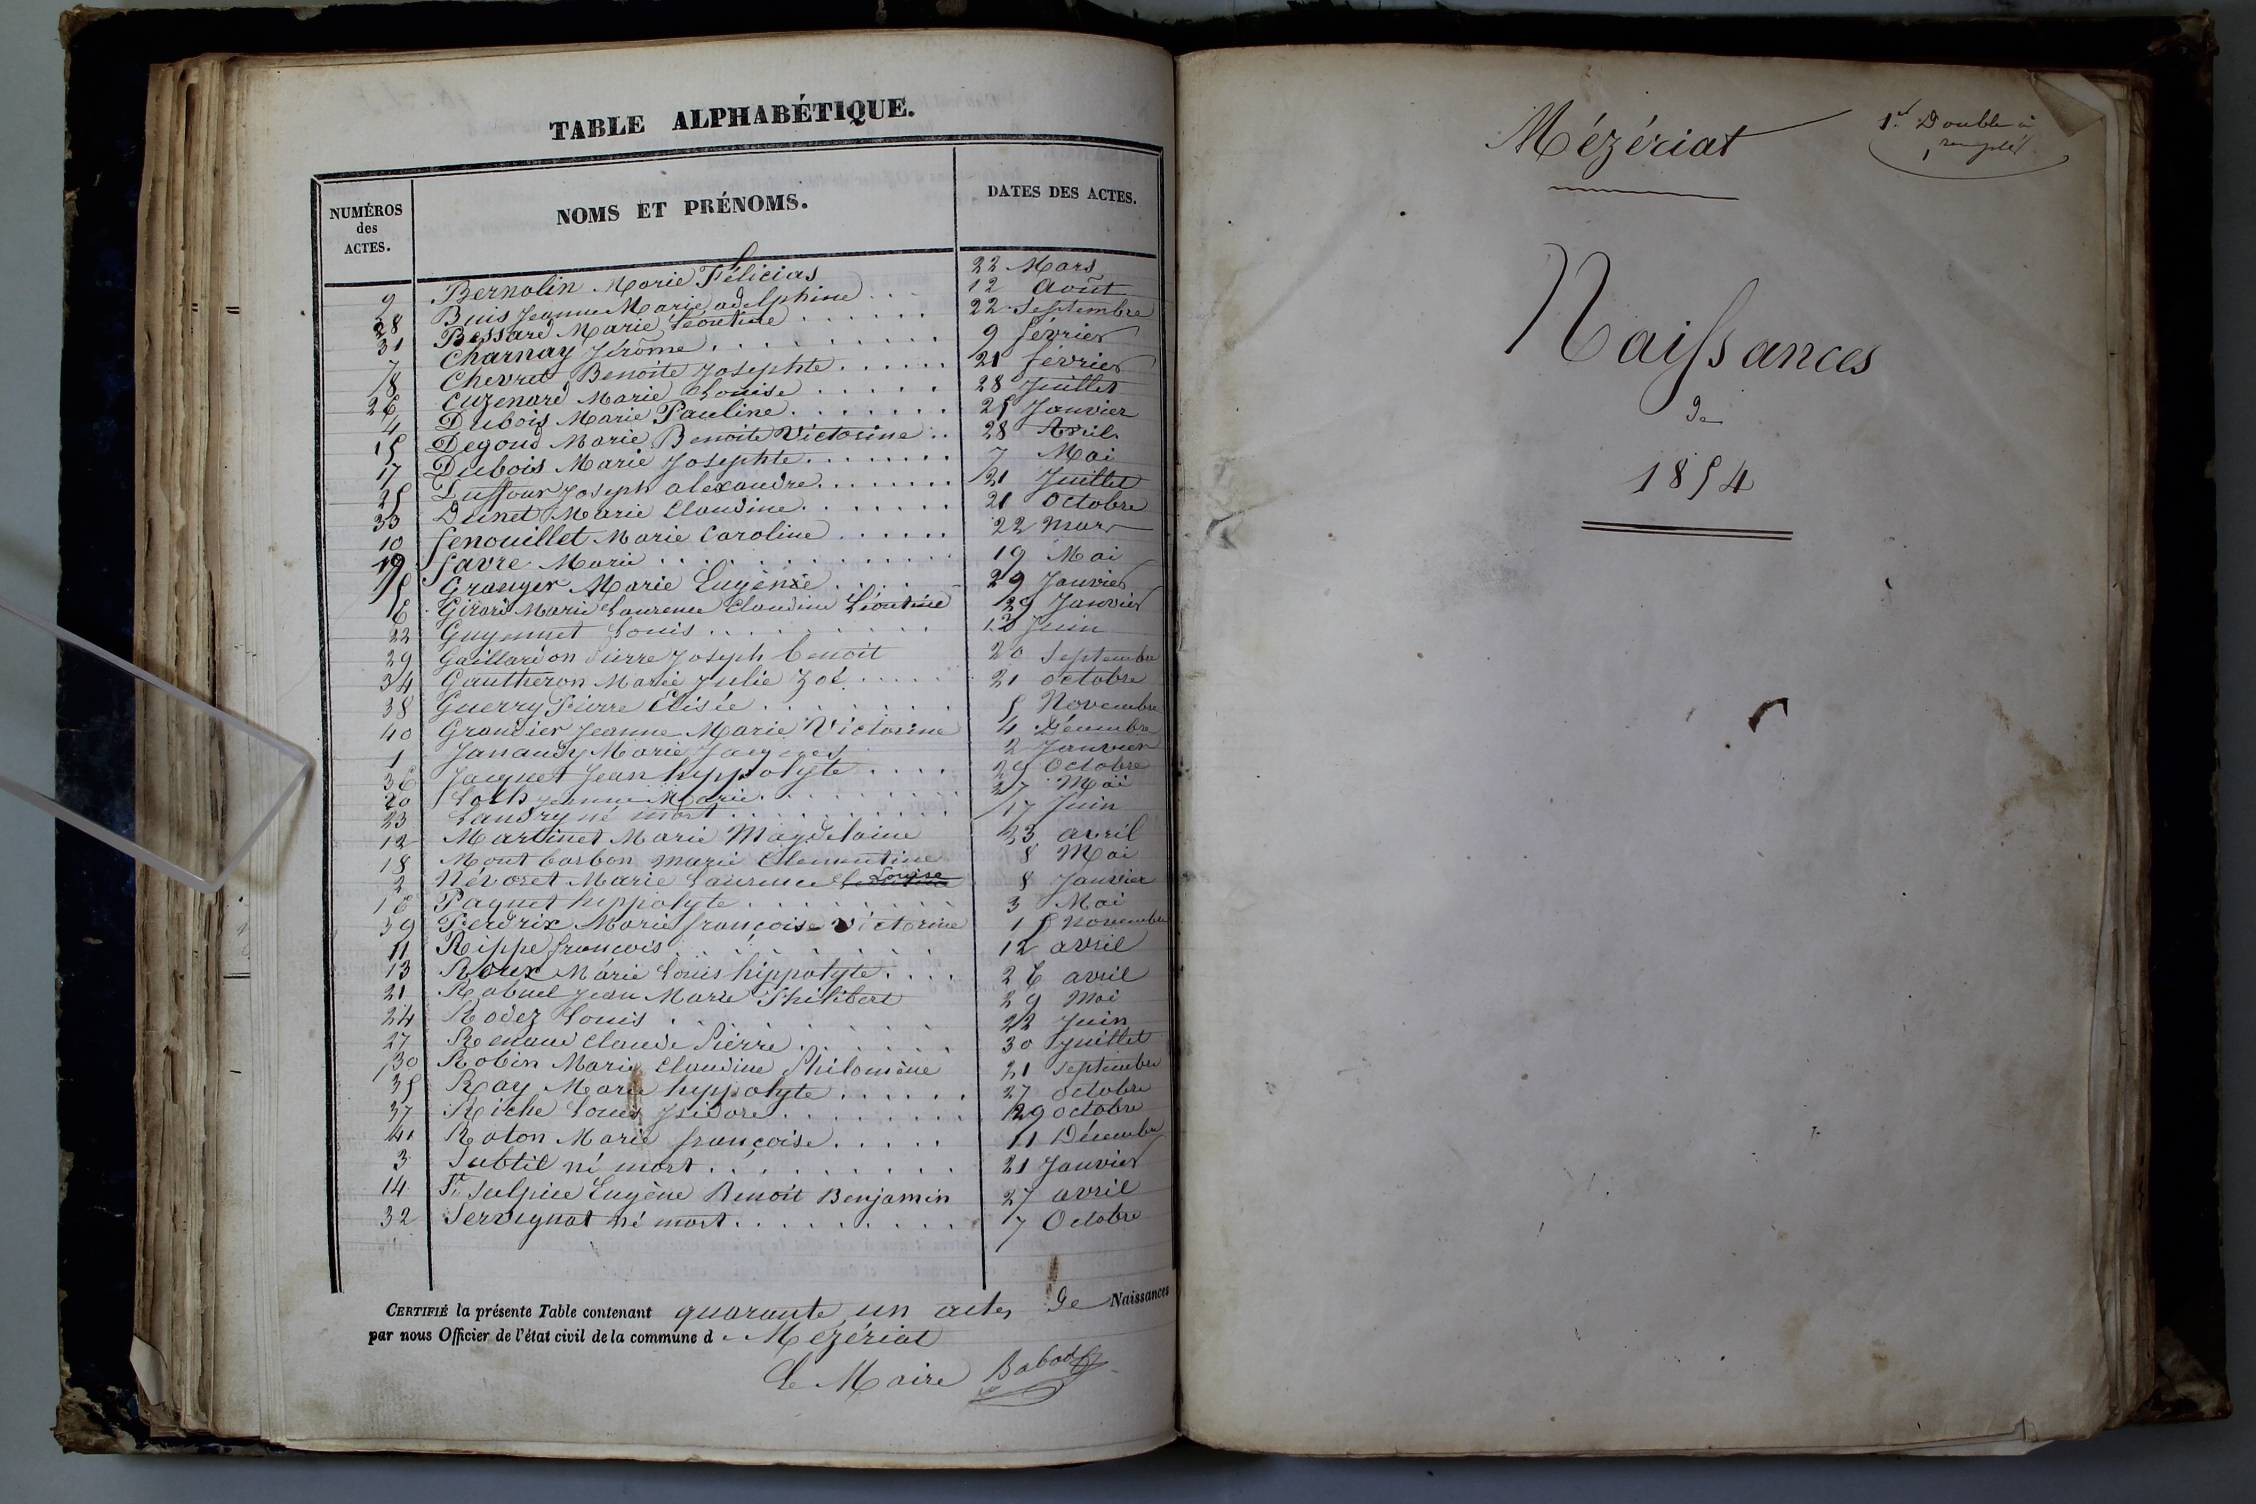 TABLE ALPHABÉTIQUE.
NUMÉROS des ACTES. NOMS ET PRÉNOMS. DATES DES ACTES.
9 Bernolin Marie Félicias 22 Mars
28 Buis Jeanne Marie adelphine 12 Août
31 Bessard Marie Léontine 22 Septembre
7 Charnay Jérôme 9 février
8 Chevret Benoite Josephte 21 février
26 Cuzenard Marie Louise 28 Juillet
4 Dubois Marie Pauline 25 Janvier
15 Degoud Marie Benoite Victorine 28 Avril
17 Dubois Marie Josephte 7 Mai
25 Duffour Joseph alexandre 21 Juillet
33 Dunet Marie Claudine 21 Octobre
10 fenouillet Marie Caroline 22 Mars
19 favre Marie 19 Mai
5 Granger Marie Eugénie 29 Janvier
6 Girard Marie Laurence Claudine Léontine 29 Janvier
22 Guyennet Louis 12 Juin
29 Gaillardon Pierre Joseph benoit 20 Septembre
34 Gautheron Marie Julie Zoé 21 octobre
38 Guerry Pierre Élisée 5 Novembre
40 Grandier Jeanne Marie Victorine 4 Décembre
1 Janaudy Marie Jacques 2 Janvier
36 Jacquet Jean hyppolyte 29 Octobre
20 Jeanne Marie 27 Mai
23 Landry né mort 17 Juin
12 Martinet Marie Magdelaine 23 avril
18 Montbarbon Marie Clementine 8 Mai
2 Névoret Marie Laurence Louise 8 Janvier
16 Paquet hippolyte 3 Mai
39 Perdrix Marie françoise Victorine 15 Novembre
11 Rippe françois 12 avril
13 Roux Marie Louis hippolyte 26 avril
21 Rabuel Jean Marie Philibert 29 Mai
24 Rodez Louis 22 Juin
27 Renaud Claude Pierre 30 Juillet
30 Robin Marie Claudine Philomène 21 Septembre
35 Ray Marie hyppolyte 27 Octobre
37 Riche Louis Jsidore 29 octobre
41 Raton Marie françoise 11 Décembre
3 Subtil né mort 21 Janvier
14 St Sulpice Eugène Benoit Benjamin 27 avril
32 Servignat né mort 7 Octobre
CERTIFIÉ la présente Table contenant quarante un actes de Naissances
par nous Officier de l'état civil de la commune d Mezériat
Le Maire Babad
Mézériat
1er Double à
Naissances
de
1854